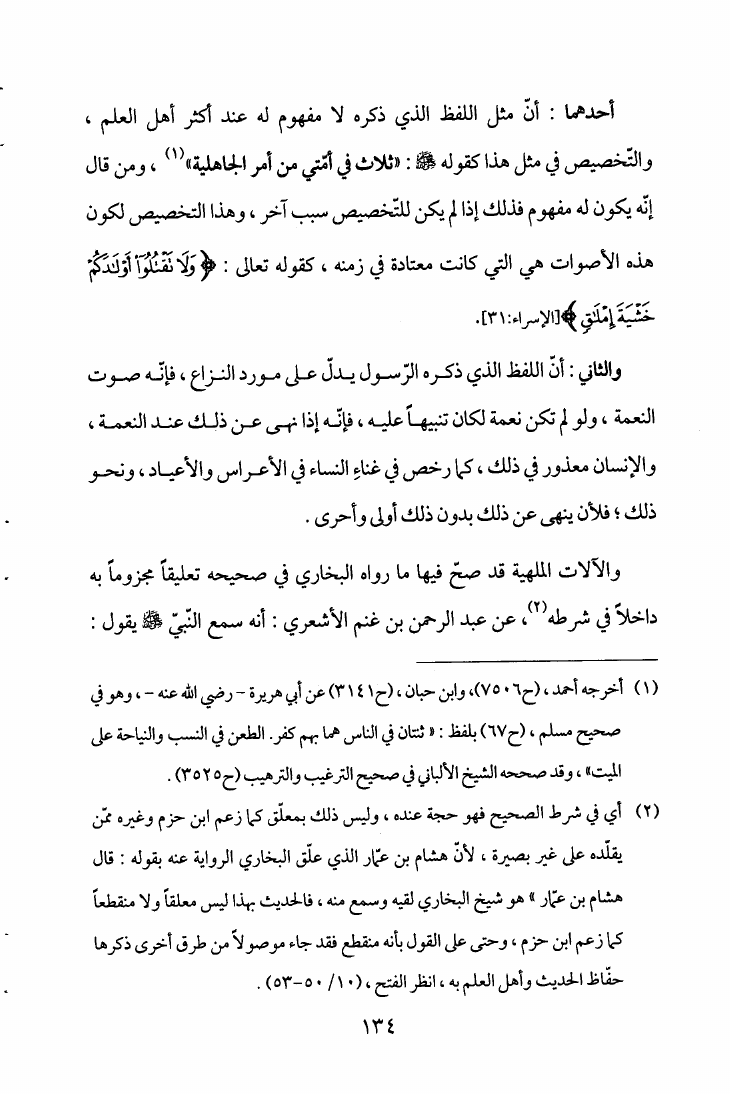 أحدهما : أنّ مثل اللفظ الذي ذكره لا مفهوم له عند أكثر أهل العلم ،
والتّخصيص في مثل هذا كقوله ﷺ : «ثلاث في أمّتي من أمر الجاهلية»(١) ، ومن قال
إنّه يكون له مفهوم فذلك إذا لم يكن للتّخصيص سبب آخر ، وهذا التخصيص لكون
هذه الأصوات هي التي كانت معتادة في زمنه ، كقوله تعالى : ﴿وَلَا نَقْتُلُوٓا أَوْلَٰدَكُمْ
خَشْيَةَ إِمْلَٰقٍ﴾[الإسراء:٣١].
والثاني : أنّ اللفظ الذي ذكره الرّسول يدلّ على مورد النزاع ، فإنّه صوت
النعمة ، ولو لم تكن نعمة لكان تنبيهاً عليه ، فإنّه إذا نهى عن ذلك عند النعمة ،
والإنسان معذور في ذلك ، كما رخص في غناءِ النساء في الأعراس والأعياد ، ونحو
ذلك ؛ فلأن ينهى عن ذلك بدون ذلك أولى وأحرى .
والآلات الملهية قد صحّ فيها ما رواه البخاري في صحيحه تعليقاً مجزوماً به
داخلاً في شرطه(٢)، عن عبد الرحمن بن غنم الأشعري : أنه سمع النّبيّ ﷺ يقول :
(١) أخرجه أحمد ، (ح٧٥٠٦)، وابن حبان ، (ح٣١٤١) عن أبي هريرة - رضي الله عنه - ، وهو في
صحيح مسلم ، (ح٦٧) بلفظ : « ثنتان في الناس هما بهم كفر. الطعن في النسب والنياحة على
الميت» ، وقد صححه الشيخ الألباني في صحيح الترغيب والترهيب (ح٣٥٢٥) .
(٢) أي في شرط الصحيح فهو حجة عنده ، وليس ذلك بمعلّق كما زعم ابن حزم وغيره ممّن
يقلّده على غير بصيرة ، لأنّ هشام بن عمّار الذي علّق البخاري الرواية عنه بقوله : قال
هشام بن عمّار » هو شيخ البخاري لقيه وسمع منه ، فالحديث بهذا ليس معلقاً ولا منقطعاً
كما زعم ابن حزم ، وحتى على القول بأنه منقطع فقد جاء موصولاً من طرق أخرى ذكرها
حفّاظ الحديث وأهل العلم به ، انظر الفتح ، (١٠/ ٥٠-٥٣) .
١٣٤